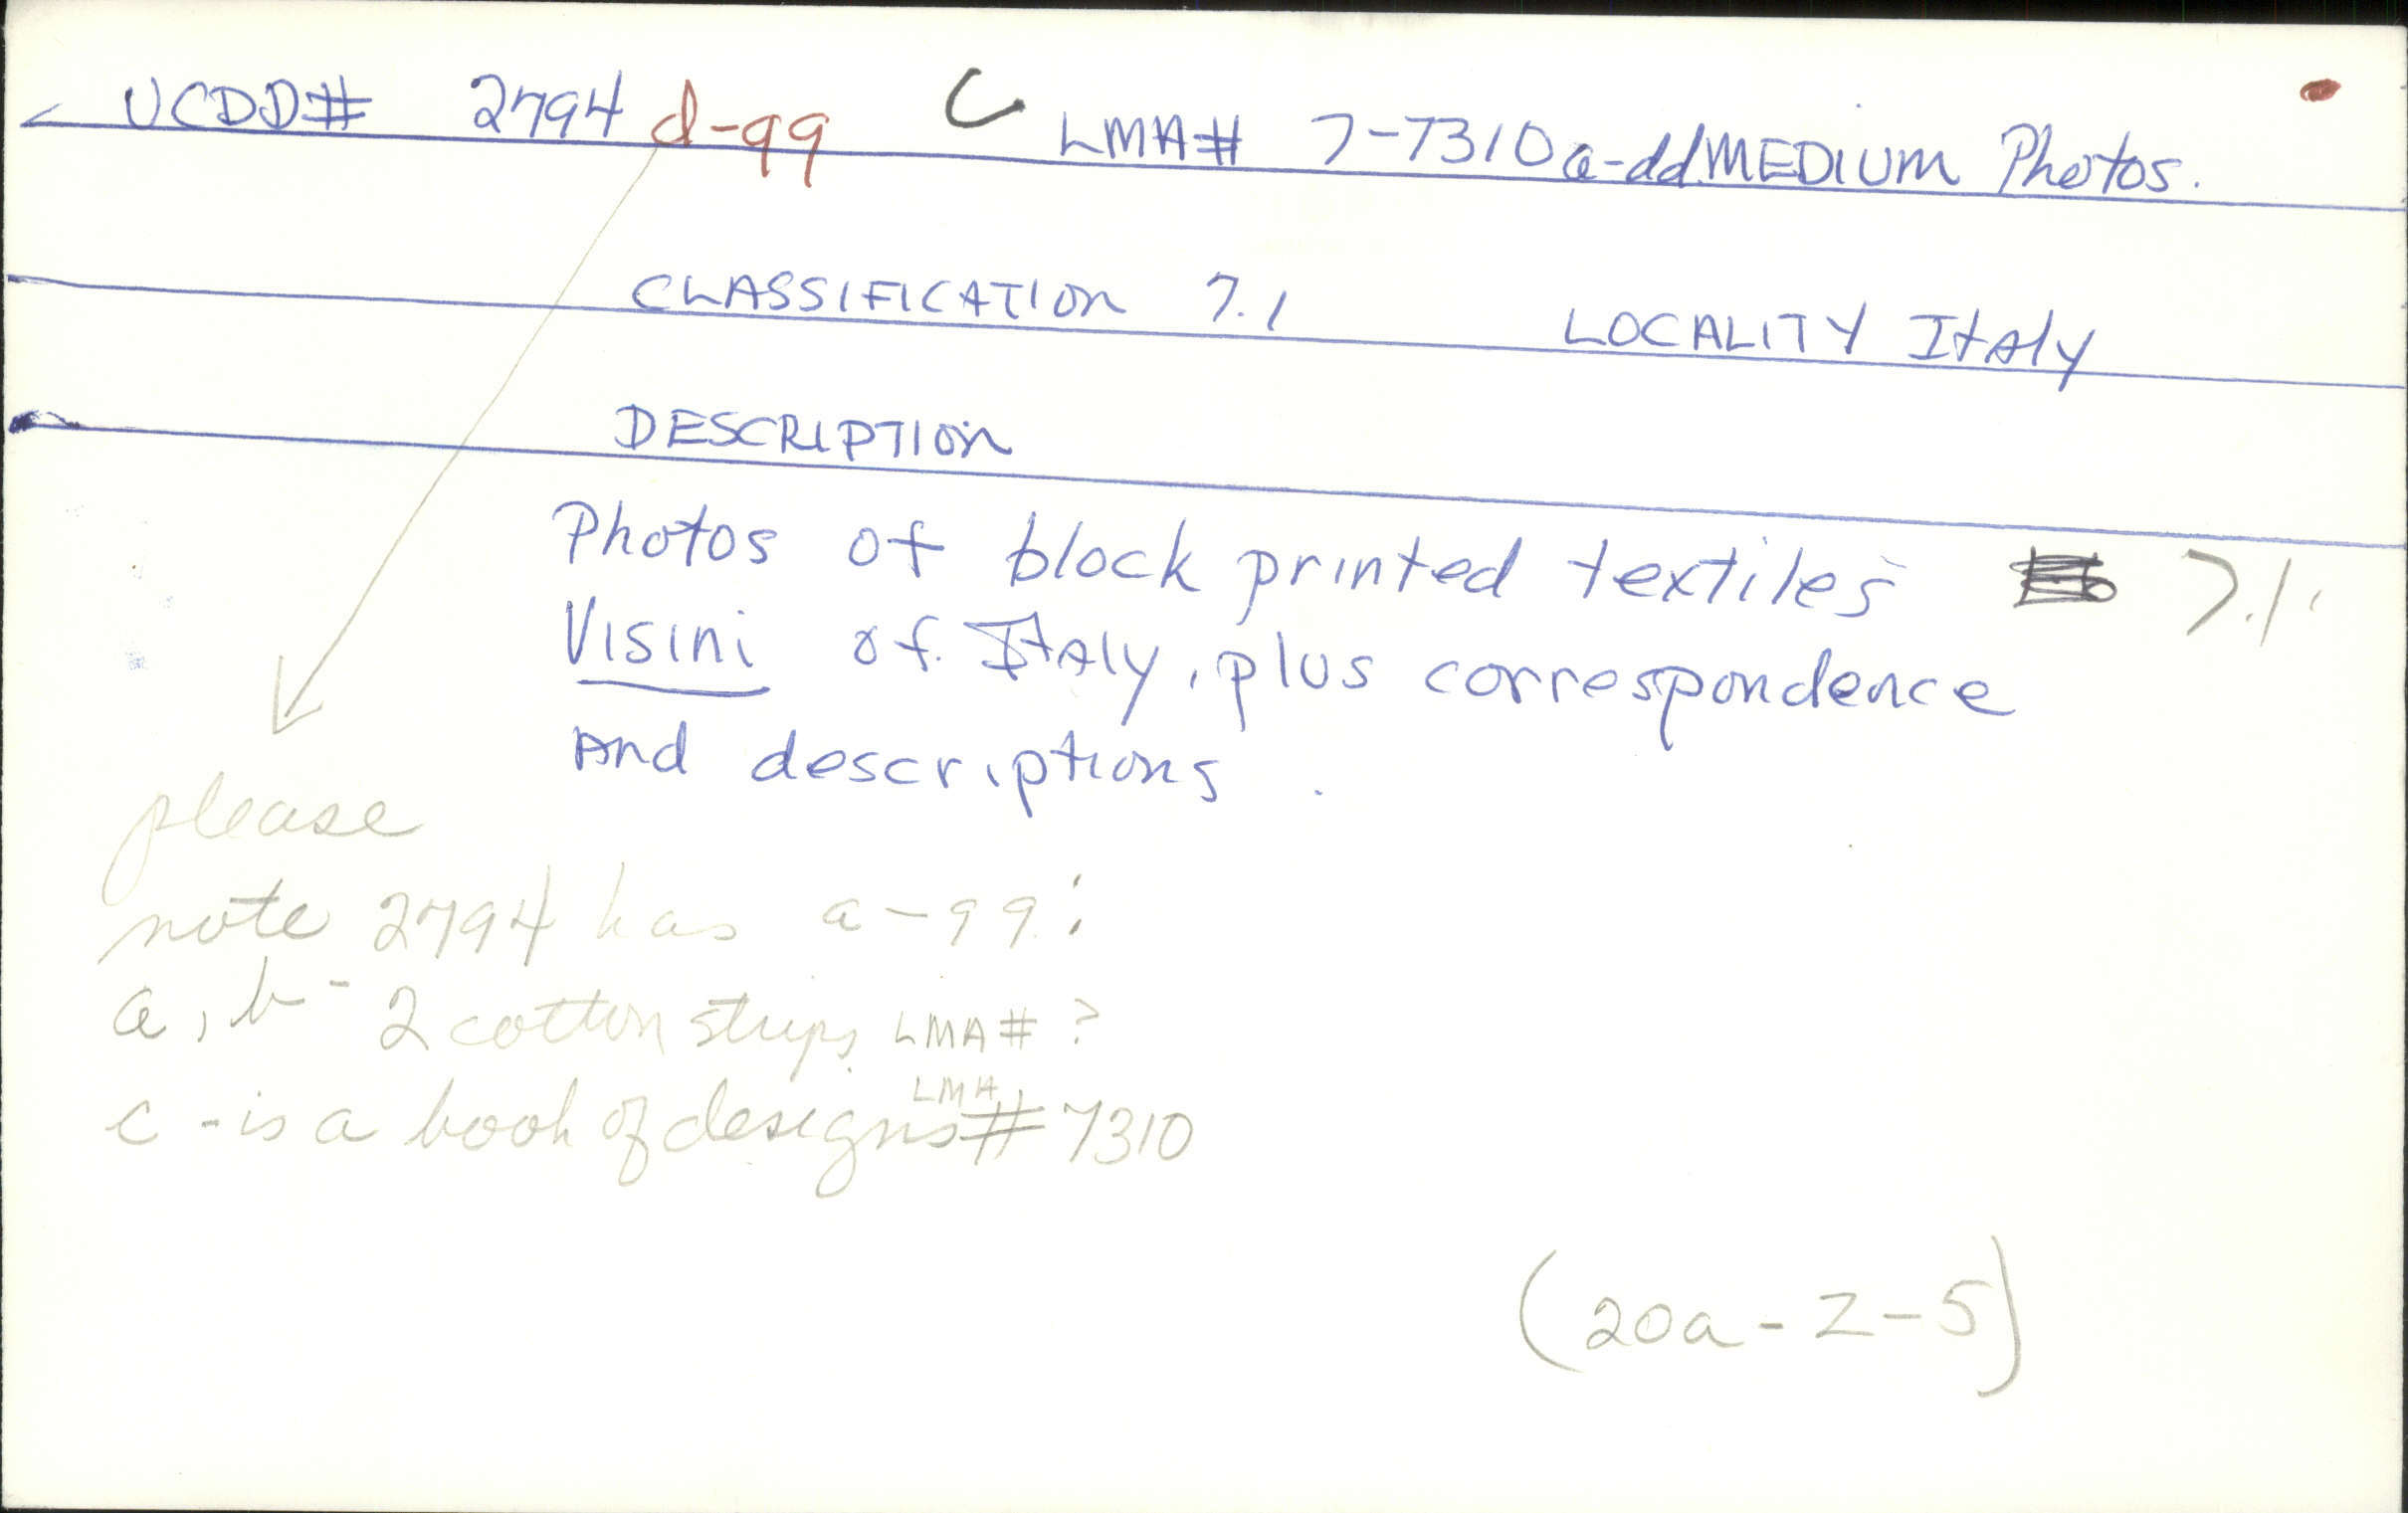 UCDD# 2794 d-qq C LMA# 7-7310a-dd MEDIUM Photos.
CLASSIFICATION 7.1 LOCALITY Italy
DESCRIPTION
Photos of block printed textiles 7.1
Visini of Italy, plus correspondence
And descriptions.
please
note 2794 has a-qq:
a, b - 2 cotton strips LMA# ?
c - is a book of designs LMA # 7310
(20a - 2 - 5)